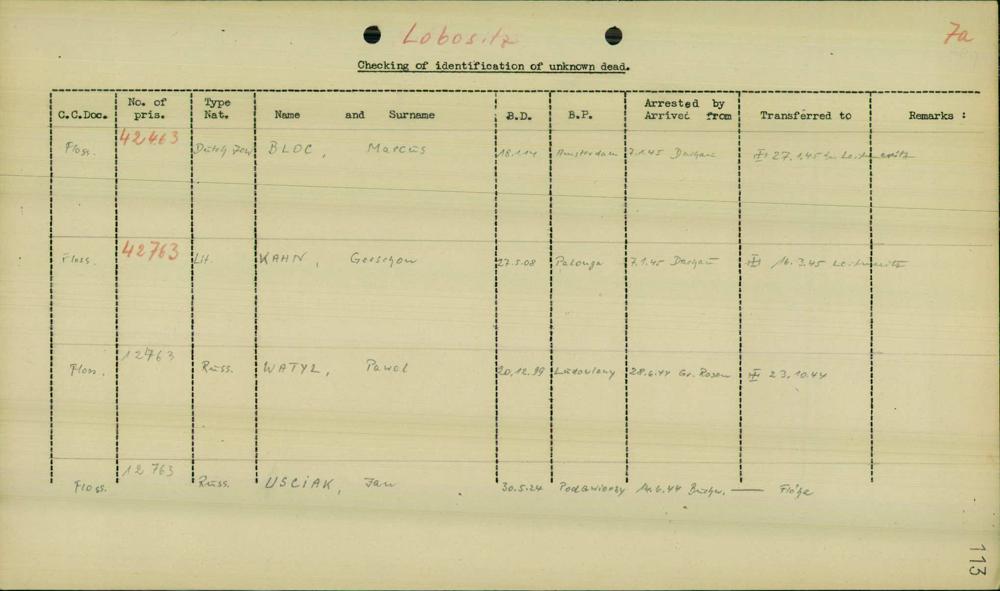 Lobositz 7a
Checking of identification of unknown dead.
C.C.Doc. No. of pris. Type Nat. Name and Surname B.D. B.P. Arrested by Arrived from Transferred to Remarks :
Floss. 42463 Dutch Jew BLOC, Marcus 18.1.14 Amsterdam 7.1.45 Dachau 27.1.45 Leitmeritz
Floss. 42763 Lit. KAHN, Gerschon 27.5.08 Palonga 7.1.45 Dachau 16.3.45 Leitmeritz
Floss. 12763 Russ. WATYL, Pawel 20.12.99 28.6.44 Gr. Rosen 23.10.44
Floss. 12763 Russ. USCIAK, Jan 30.5.24 Buchw. — Flöha
113